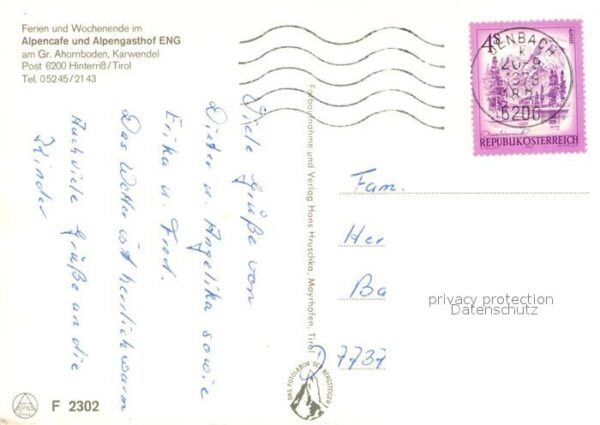 Ferien und Wochenende im
Alpencafe und Alpengasthof ENG
am Gr. Ahornboden, Karwendel
Post 6200 Hinterriß/Tirol
Tel. 05245/2143
Viele Grüße von
Dieter u. Angelika sowie
Erika u. Fred.
Das Wetter ist herrlich warm
Auch viele Grüße an die
Kinder
Farbaufnahme und Verlag Hans Hruschka, Mayrhofen, Tirol
JENBACH
6200
4S
REPUBLIK ÖSTERREICH
Fam.
Her
Ba
D 7737
privacy protection
Datenschutz
DAS FOTOLABOR DER BERGSTEIGER
F 2302